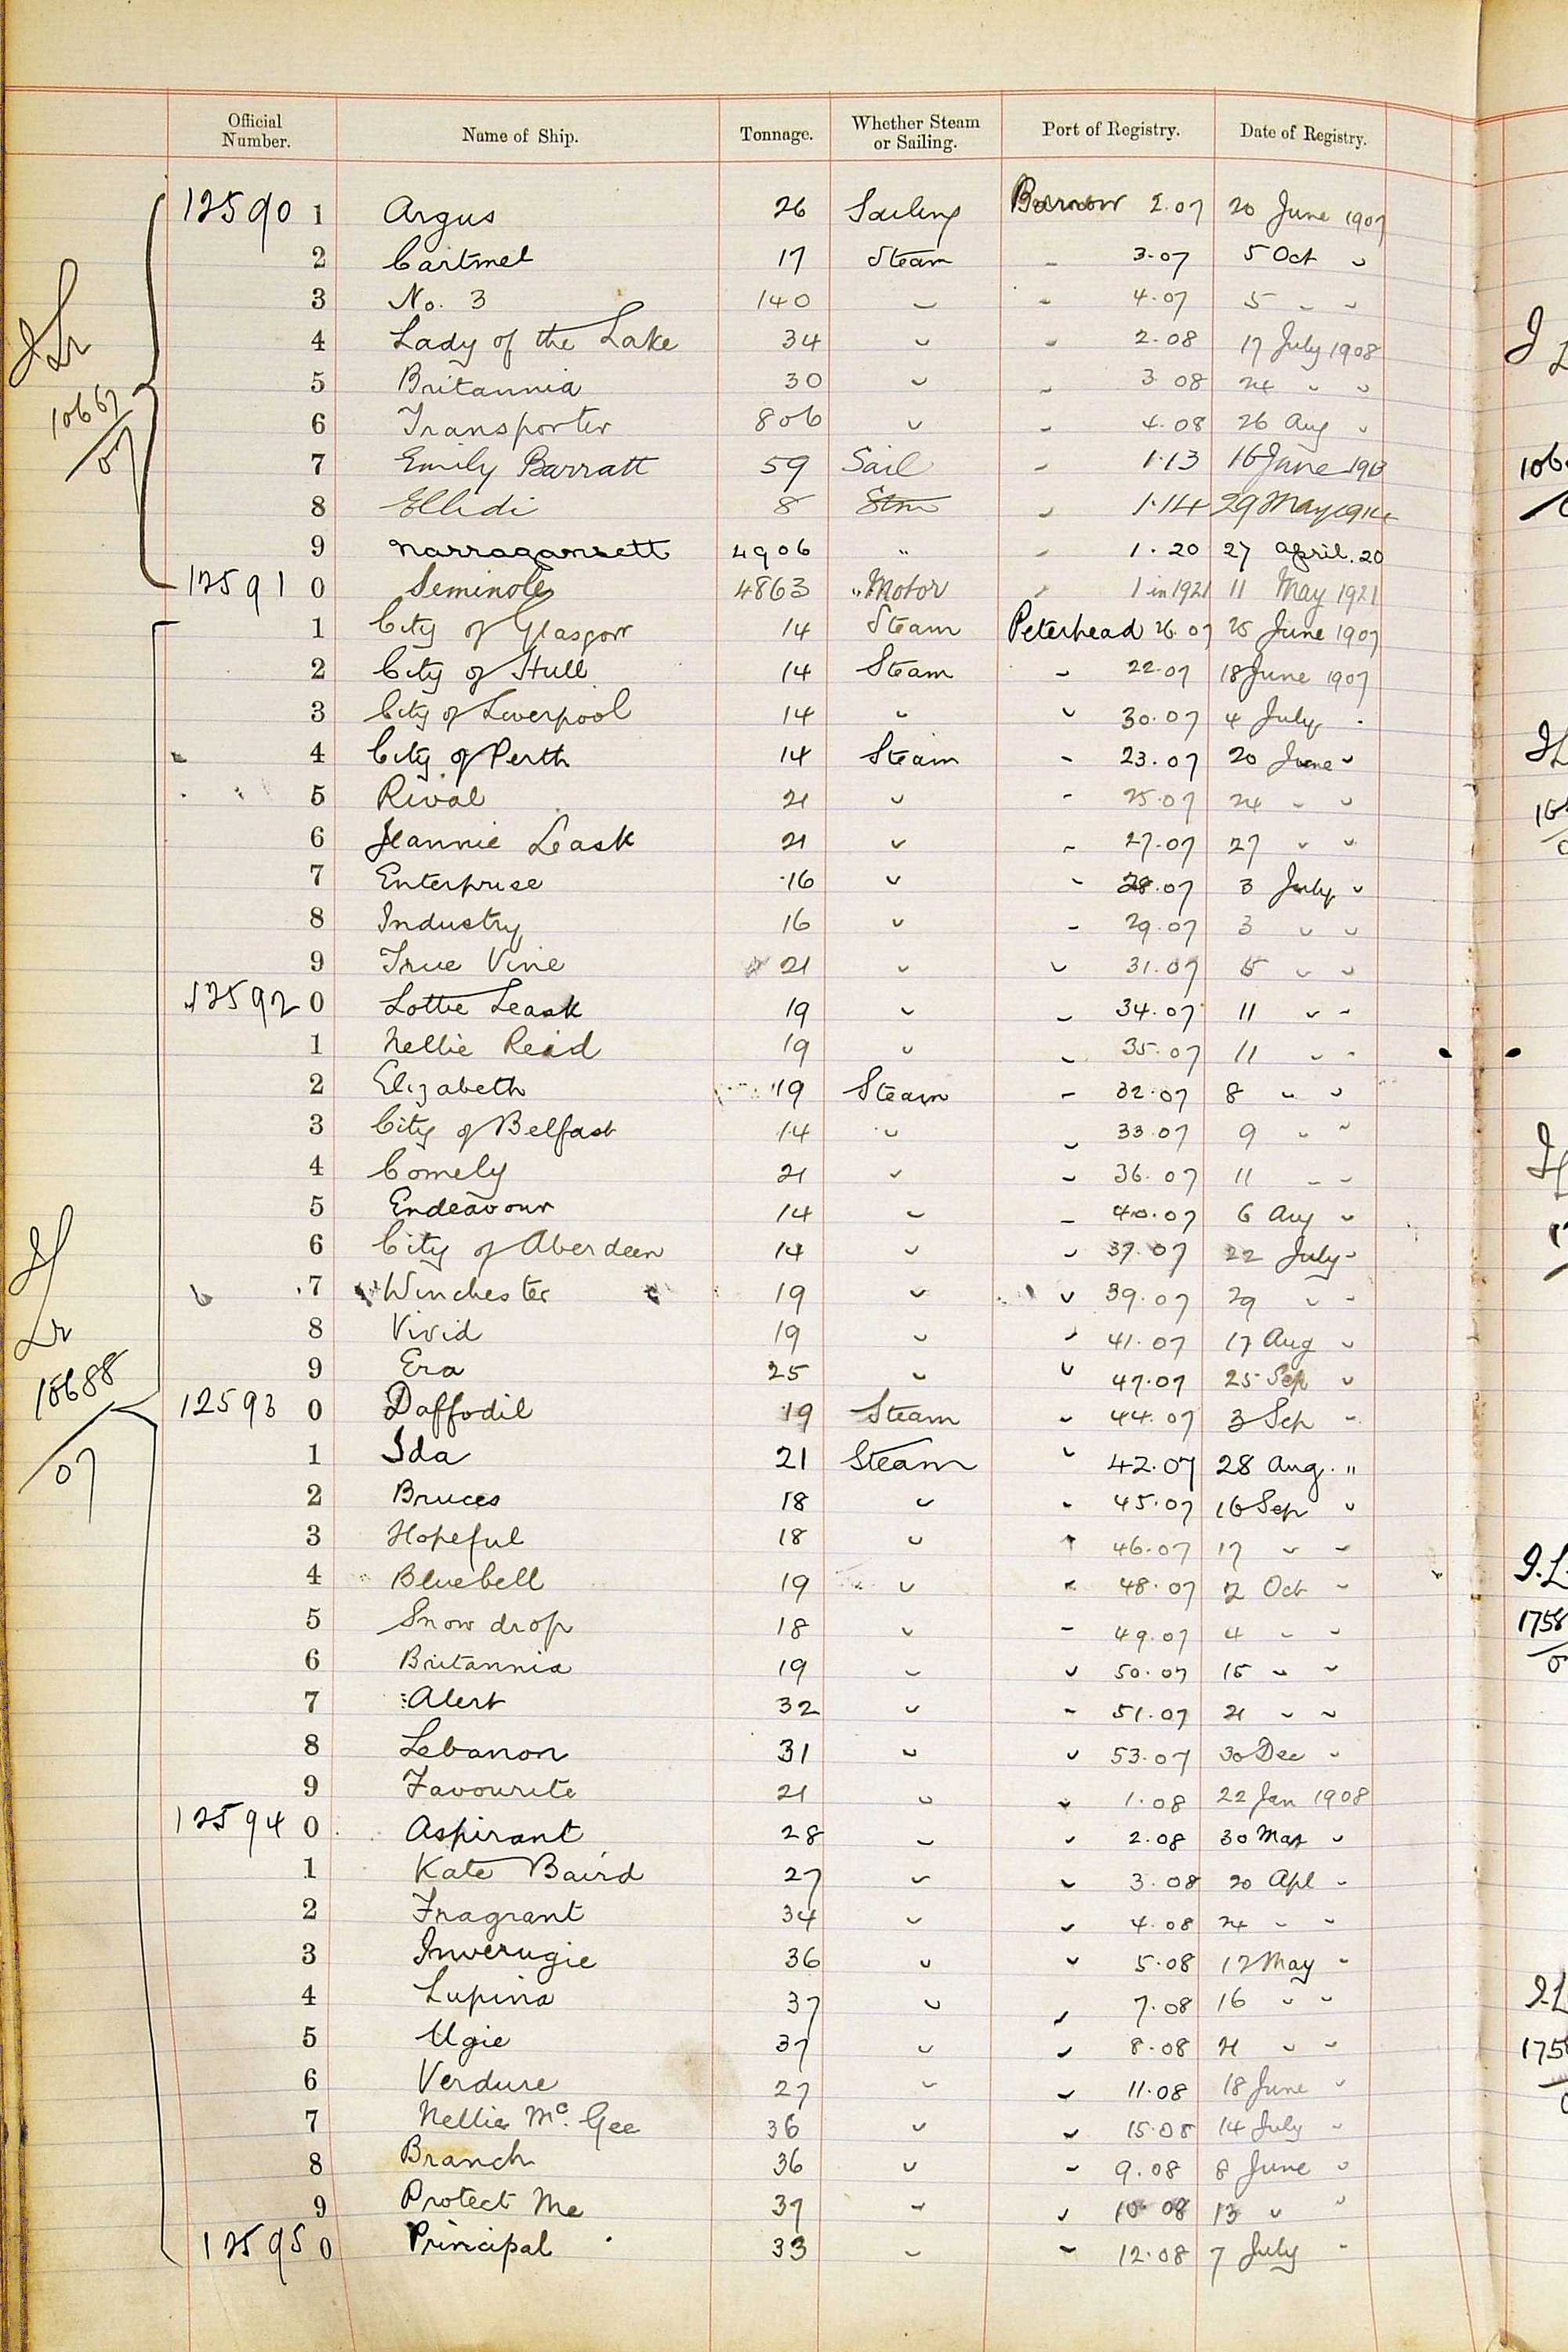 Official Number. Name of Ship. Tonnage. Whether Steam or Sailing. Port of Registry. Date of Registry.
12590 1 Argus 26 Sailing Barrow 2.07 20 June 1907
2 Cartmel 17 Steam " 3.07 5 Oct "
3 No. 3 140 " " 4.07 5 " "
4 Lady of the Lake 34 " " 2.08 17 July 1908
5 Britannia 30 " " 3 08 24 " "
6 Transporter 806 " " 4.08 26 Aug "
7 Emily Barratt 59 Sail " 1.13 16 June 1913
8 Ellidi 8 Stm " 1.14 29 May 1914
9 Narragansett 4906 " " 1.20 27 April.20
12591 0 Seminole 4863 " Motor " 1 in 1921 11 May 1921
1 City of Glasgow 14 Steam Peterhead 26.07 25 June 1907
2 City of Hull 14 Steam " 22.07 18 June 1907
3 City of Liverpool 14 " " 30.07 4 July "
4 City of Perth 14 Steam " 23.07 20 June "
5 Rival 21 " " 25.07 24 " "
6 Jeannie Leask 21 " " 27.07 27 " "
7 Enterprise 16 " " 28.07 3 July "
8 Industry 16 " " 29.07 3 " "
9 True Vine 21 " " 31.07 5 " "
12592 0 Lottie Leask 19 " " 34.07 11 " "
1 Nellie Reid 19 " " 35.07 11 " "
2 Elizabeth 19 Steam " 32.07 8 " "
3 City of Belfast 14 " " 33.07 9 " "
4 Comely 21 " " 36.07 11 " "
5 Endeavour 14 " " 40.07 6 Aug "
6 City of Aberdeen 14 " " 37.07 22 July "
7 Winchester 19 " " 39.07 29 " "
8 Vivid 19 " " 41.07 17 Aug "
9 Era 25 " " 47.07 25 Sep "
12593 0 Daffodil 19 Steam " 44.07 3 Sep "
1 Ida 21 Steam " 42.07 28 Aug. "
2 Bruces 18 " " 45.07 16 Sep "
3 Hopeful 18 " " 46.07 17 " "
4 Bluebell 19 " " 48.07 2 Oct "
5 Snowdrop 18 " " 49.07 4 " "
6 Britannia 19 " " 50.07 15 " "
7 Alert 32 " " 51.07 21 " "
8 Lebanon 31 " " 53.07 30 Dec "
9 Favourite 21 " " 1.08 22 Jan 1908
12594 0 Aspirant 28 " " 2.08 30 Mar "
1 Kate Baird 27 " " 3.08 20 Apl "
2 Fragrant 34 " " 4.08 24 " "
3 Inverugie 36 " " 5.08 12 May "
4 Lupina 37 " " 7.08 16 " "
5 Ugie 37 " " 8.08 21 " "
6 Verdure 27 " " 11.08 18 June "
7 Nellie Mc. Gee 36 " " 15.08 14 July "
8 Branch 36 " " 9.08 8 June "
9 Protect Me 37 " " 10 08 13 " "
12595 0 Principal 33 " " 12.08 7 July "
10667/07
10688/07